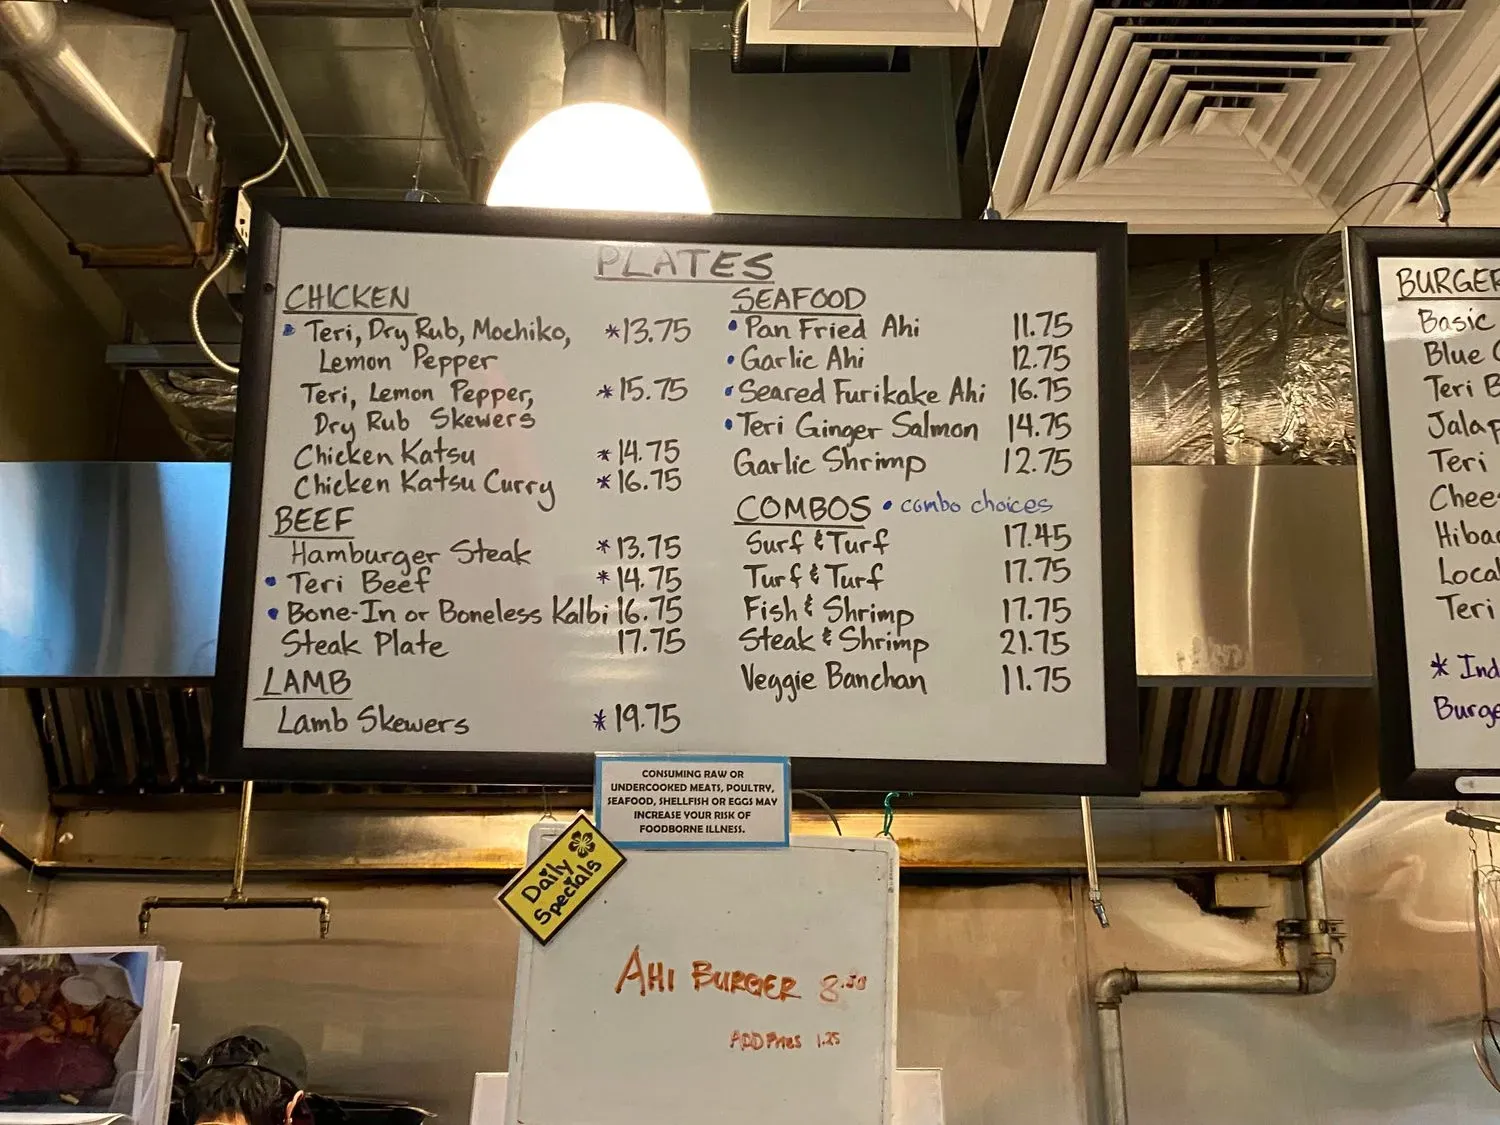 PLATES
CHICKEN
• Teri, Dry Rub, Mochiko, *13.75
Lemon Pepper
Teri, Lemon Pepper, *15.75
Dry Rub Skewers
Chicken Katsu *14.75
Chicken Katsu Curry *16.75
BEEF
Hamburger Steak *13.75
• Teri Beef *14.75
• Bone-In or Boneless Kalbi 16.75
Steak Plate 17.75
LAMB
Lamb Skewers *19.75
SEAFOOD
• Pan Fried Ahi 11.75
• Garlic Ahi 12.75
• Seared Furikake Ahi 16.75
• Teri Ginger Salmon 14.75
Garlic Shrimp 12.75
COMBOS • combo choices
Surf & Turf 17.45
Turf & Turf 17.75
Fish & Shrimp 17.75
Steak & Shrimp 21.75
Veggie Banchan 11.75
BURGER
Basic
Blue
Teri B
Jalap
Teri
Chee
Hiba
Local
Teri
* Ind
Burge
CONSUMING RAW OR
UNDERCOOKED MEATS, POULTRY,
SEAFOOD, SHELLFISH OR EGGS MAY
INCREASE YOUR RISK OF
FOODBORNE ILLNESS.
Daily
Specials
AHI BURGER
ADD Fries 1.25